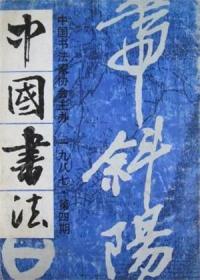 中國書法
中国书法家协会主办 一九八七·第四期
帶斜陽